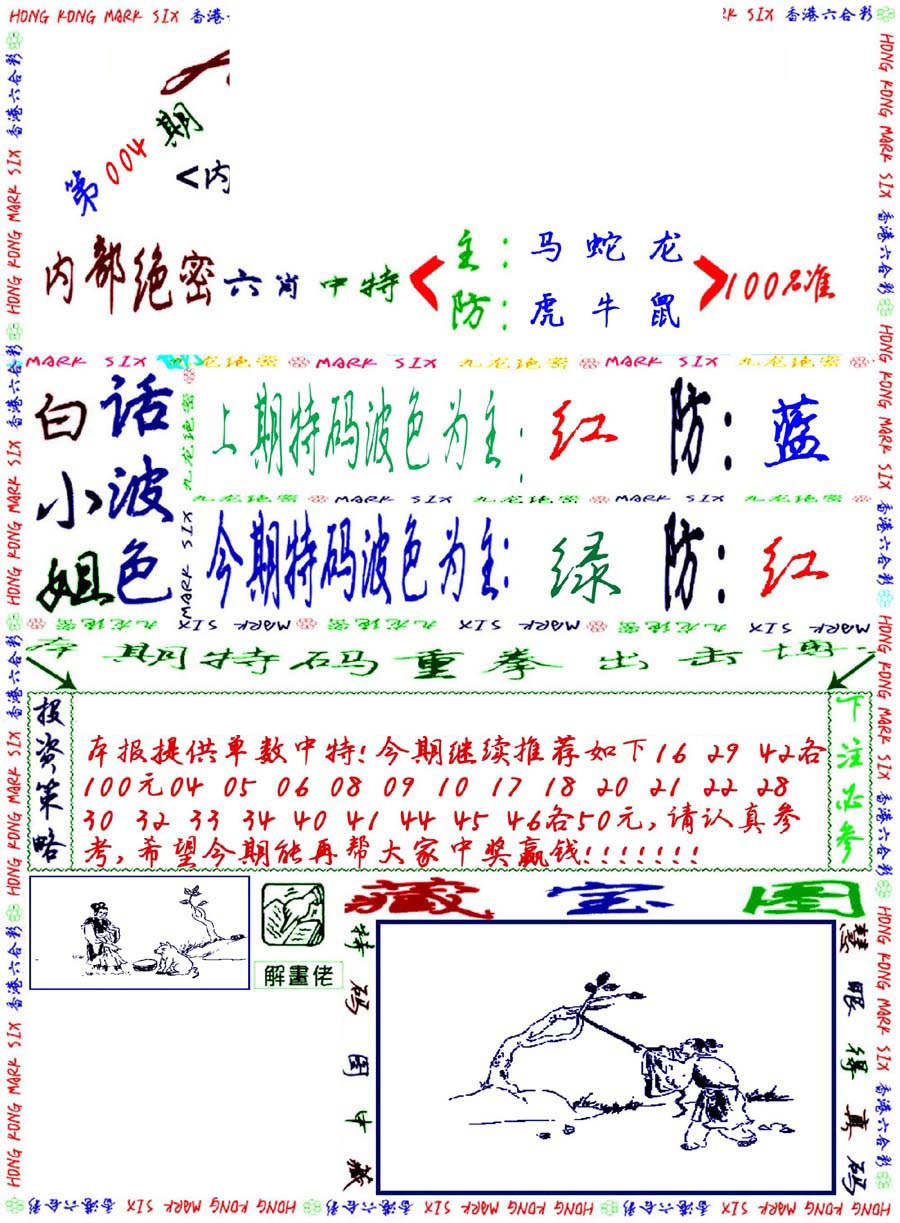 HONG KONG MARK SIX 香港
SIX 香港六合彩
第004期
<内
内部绝密六肖中特
主：马 蛇 龙
防：虎 牛 鼠
100%准
MARK SIX 九龙绝密 MARK SIX 九龙绝密 MARK SIX 九龙绝密
白小姐
话波色
上期特码波色为主：红 防：蓝
九龙绝密 MARK SIX 九龙绝密 MARK SIX 九龙绝密
今期特码波色为主：绿 防：红
九龙绝密 MARK SIX 九龙绝密 MARK SIX 九龙绝密 MARK SIX
本期特码重拳出击博
投资策略
本报提供单数中特!今期继续推荐如下16 29 42各
100元04 05 06 08 09 10 17 18 20 21 22 28
30 32 33 34 40 41 44 45 46各50元,请认真参
考,希望今期能再帮大家中奖赢钱!!!!!!!
下注必参
解畫佬
藏宝图
特码图中藏
慧眼得真码
HONG KONG MARK SIX 香港六合彩